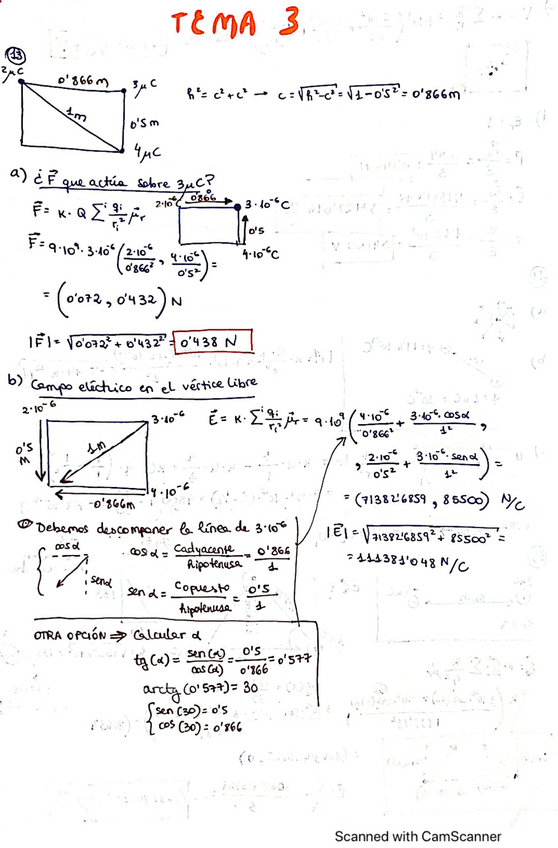 TEMA 3
13
2μC
0'866m
3μC
1m
0'5m
4μC
h² = c² + c² → c = √h²-c² = √1-0'5² = 0'866m
a) ¿F⃗ que actúa sobre 3μC?
F⃗ = K · Q Σⁱ qᵢ/rᵢ² μ⃗r
2·10⁻⁶
0'866
3·10⁻⁶C
0'5
4·10⁻⁶C
F⃗ = 9·10⁹ · 3·10⁻⁶ (2·10⁻⁶/0'866² , 4·10⁻⁶/0'5²) =
= (0'072, 0'432) N
|F⃗| = √0'072² + 0'432² = 0'438 N
b) Campo eléctrico en el vértice libre
2·10⁻⁶
3·10⁻⁶
0'5
M
1m
4·10⁻⁶
-0'866m
E⃗ = K · Σⁱ qᵢ/rᵢ² μ⃗r = 9·10⁹ (4·10⁻⁶/0'866² + 3·10⁻⁶·cosα/1² ,
, 2·10⁻⁶/0'5² + 3·10⁻⁶·senα/1²) =
= (71382'6859, 85500) N/C
|E⃗| = √71382'6859² + 85500² =
= 111381'048 N/C
Debemos descomponer la línea de 3·10⁻⁶
cosα
senα
· cosα = Cadyacente/hipotenusa = 0'866/1
senα = Copuesto/hipotenusa = 0'5/1
OTRA OPCIÓN ⇒ Calcular α
tg(α) = sen(α)/cos(α) = 0'5/0'866 = 0'577
arctg(0'577) = 30
sen(30) = 0'5
cos(30) = 0'866
Scanned with CamScanner